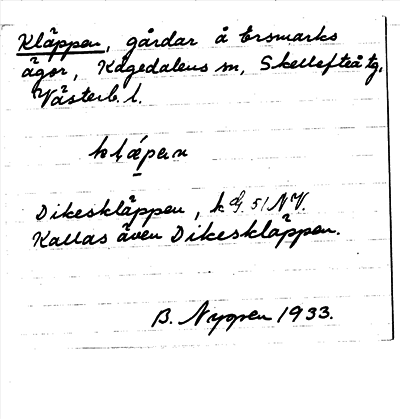 Kläppen, gårdar å Ersmarks
ägor, Kågedalens sn, Skellefteå tg,
Västerb. l.
klǽpen
Dikeskläppen, k. G. 51 NV.
Kallas även Dikeskläppen.
B. Nygren 1933.